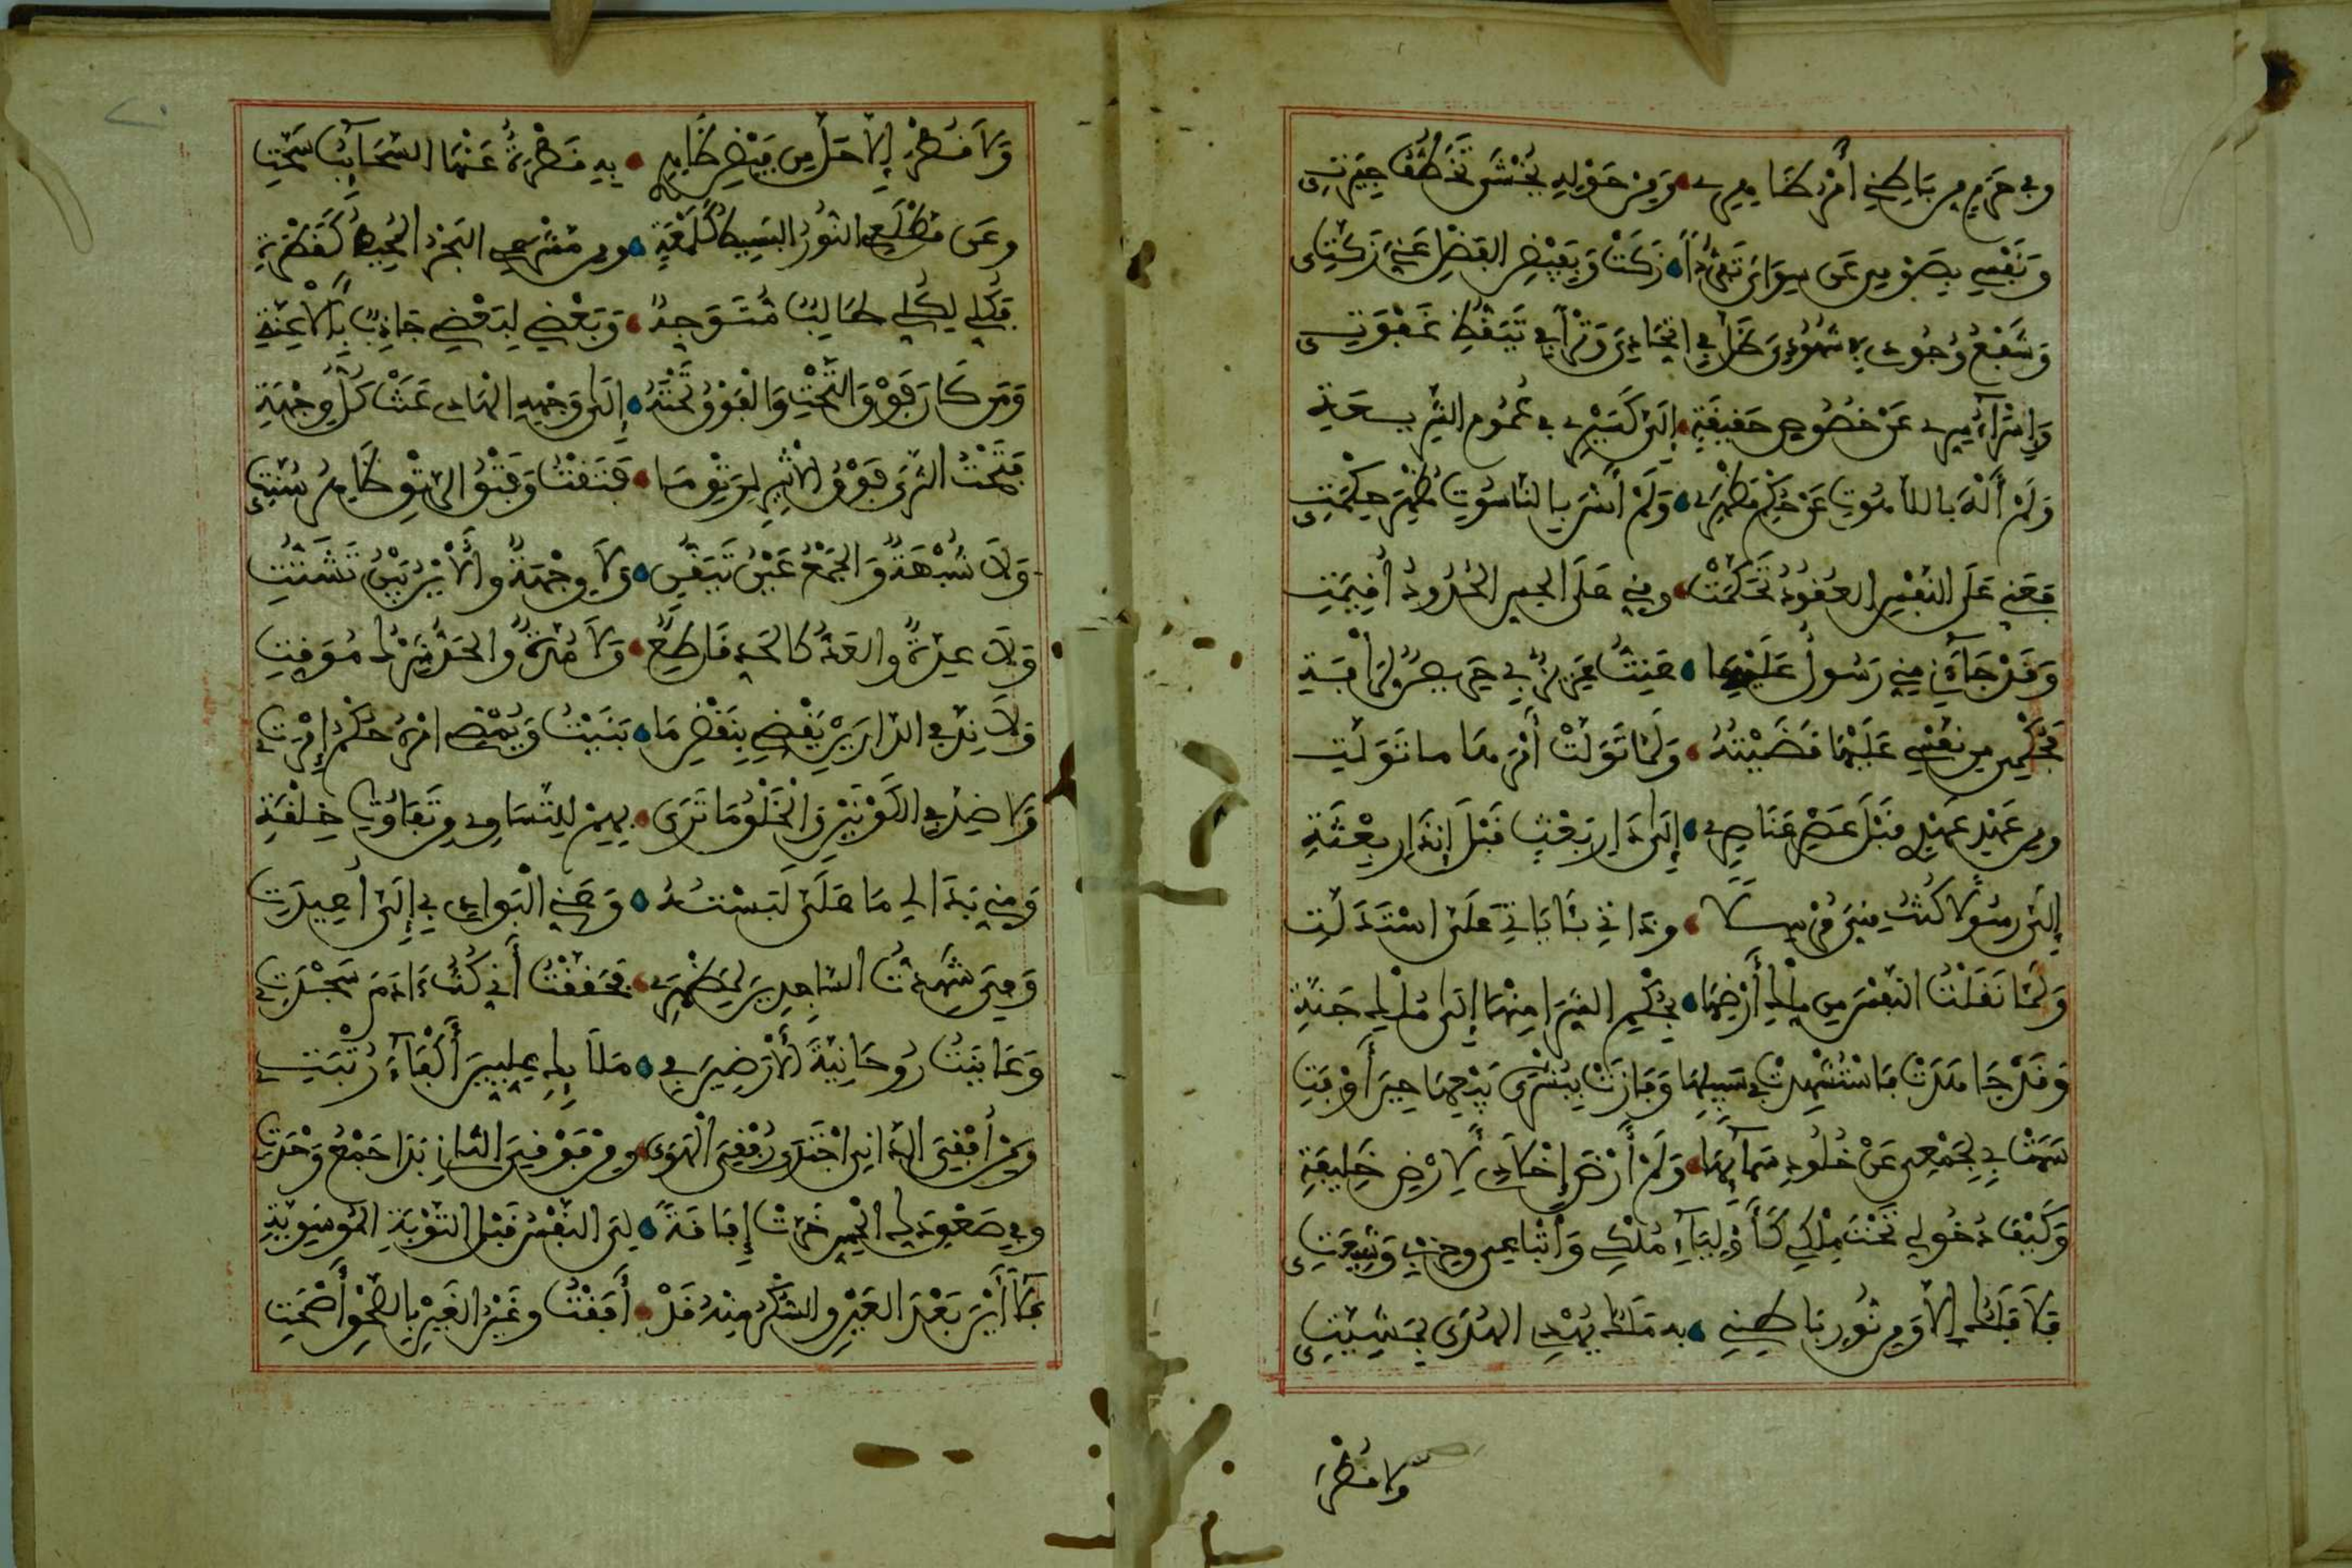 وفي حرم من باطني أمن ظاهري ومن حوله يخشى تخطف جيرتي
ونفسي بصومي عن سواي تفردا زكت وبفيض الفضل عني زكت
وشفع وجودي في شهودي ظل في اتحادي وترا في تيقظ غفوتي
وإسراء سري عن خصوص حقيقة إلي كسيري في عموم الشريعة
ولم أله باللاهوت عن حكم مظهري ولم أنس بالناسوت مظهر حكمتي
فعني على النفس العقود تحكمت ومني على الحس الحدود أقيمت
وقد جاءني مني رسول عليه ما عنت عزيز بي حريص لرأفة
فحكمي من نفسي عليها قضيته ولما تولت أمرها ما تولت
ومن عهد عهدي قبل عصر عناصري إلى دار بعث قبل إنذار بعثة
إلي رسولا كنت مني مرسلا وذاتي بئاياتي علي استدلت
ولما نقلت النفس من ملك أرضها بحكم الشرا منها إلى ملك جنة
وقد جاهدت فاستشهدت في سبيلها وفازت ببشرى بيعها حين أوفت
سمت بي لجمعي عن خلود سمائها ولم أرض إخلادي لأرض خليفة
وكيف دخولي تحت ملكي كأولياء ملكي وأتباعي وحزبي وشيعتي
فلا فلك إلا ومن نور باطني به ملك يهدي الهدى بمشيئتي
ولا قطر ا
ولا قطر إلا حل من فيض ظاهري به قطرة عنها السحائب سحت
وعن مطلعي النور البسيط كلمعة ومن مشرعي البحر المحيط كقطرة
فكلي لكلي طالب متوجه وبعضي لبعضي جاذب بالأعنة
ومن كان فوق التحت والفوق تحته إلى وجهه الهادي عنت كل وجهة
فتحت الثرى فوق الأثير لرتق ما فتقت وفتق الرتق ظاهر سنتي
ولا شبهة والجمع عين تيقن ولا وجهة والأين بين تشتت
ولا عدة والعد كالحد قاطع ولا مدة والحد شرك موقت
ولا ند في الدارين يقضي بنقض ما بنيت ويمضي أمره حكم إمرتي
ولا ضد في الكونين والخلق ما ترى بهم للتساوي وتفاوت خلقة
ومني بدا لي ما علي لبسته وعني البوادي بي إلي أعيدت
وفي شهدت الساجدين لمظهري فحققت أني كنت ءادم سجدتي
وعاينت روحانية الأرضين في ملائك عليين أكفاء رتبتي
ومن أفقي الداني اجتدى رفقي الهدى ومن فرقي الثاني بدا جمع وحدتي
وفي صعق دك الحس خرت إفاقة لي النفس قبل التوبة الموسوية
فلا أين بعد العين والسكر منه قد أفقت وعين الغين بالصحو أصحت